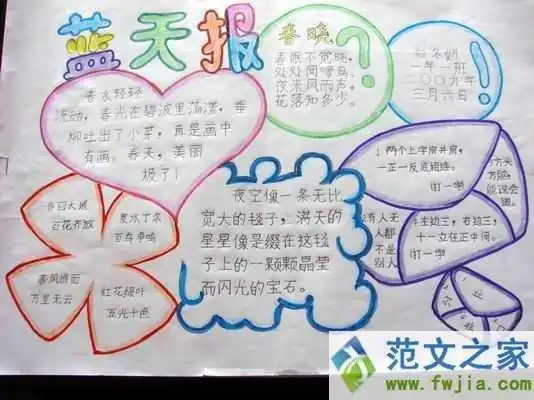 蓝天报
春晓
春眠不觉晓,
处处闻啼鸟。
夜来风雨声,
花落知多少。
?
白冬妮
一年一班
二〇〇九年
三月六日
!
春水轻轻
流动,春光在碧波里荡漾,垂
柳吐出了小芽,真是画中
有画。春天,美丽
极了!
春回大地
百花齐放
百鸟争鸣
春风拂面
万里无云
红花绿叶
五光十色
夜空像一条无比
宽大的毯子,满天的
星星像是缀在这毯
子上的一颗颗晶莹
而闪光的宝石。
1.两个上字肩并肩,
一正一反底相连。
(打一字)
有人无
人都
不是
别人
4.左边三,右边三,
十一立在正中间。
(打一字)
范文之家
www.fwjia.com